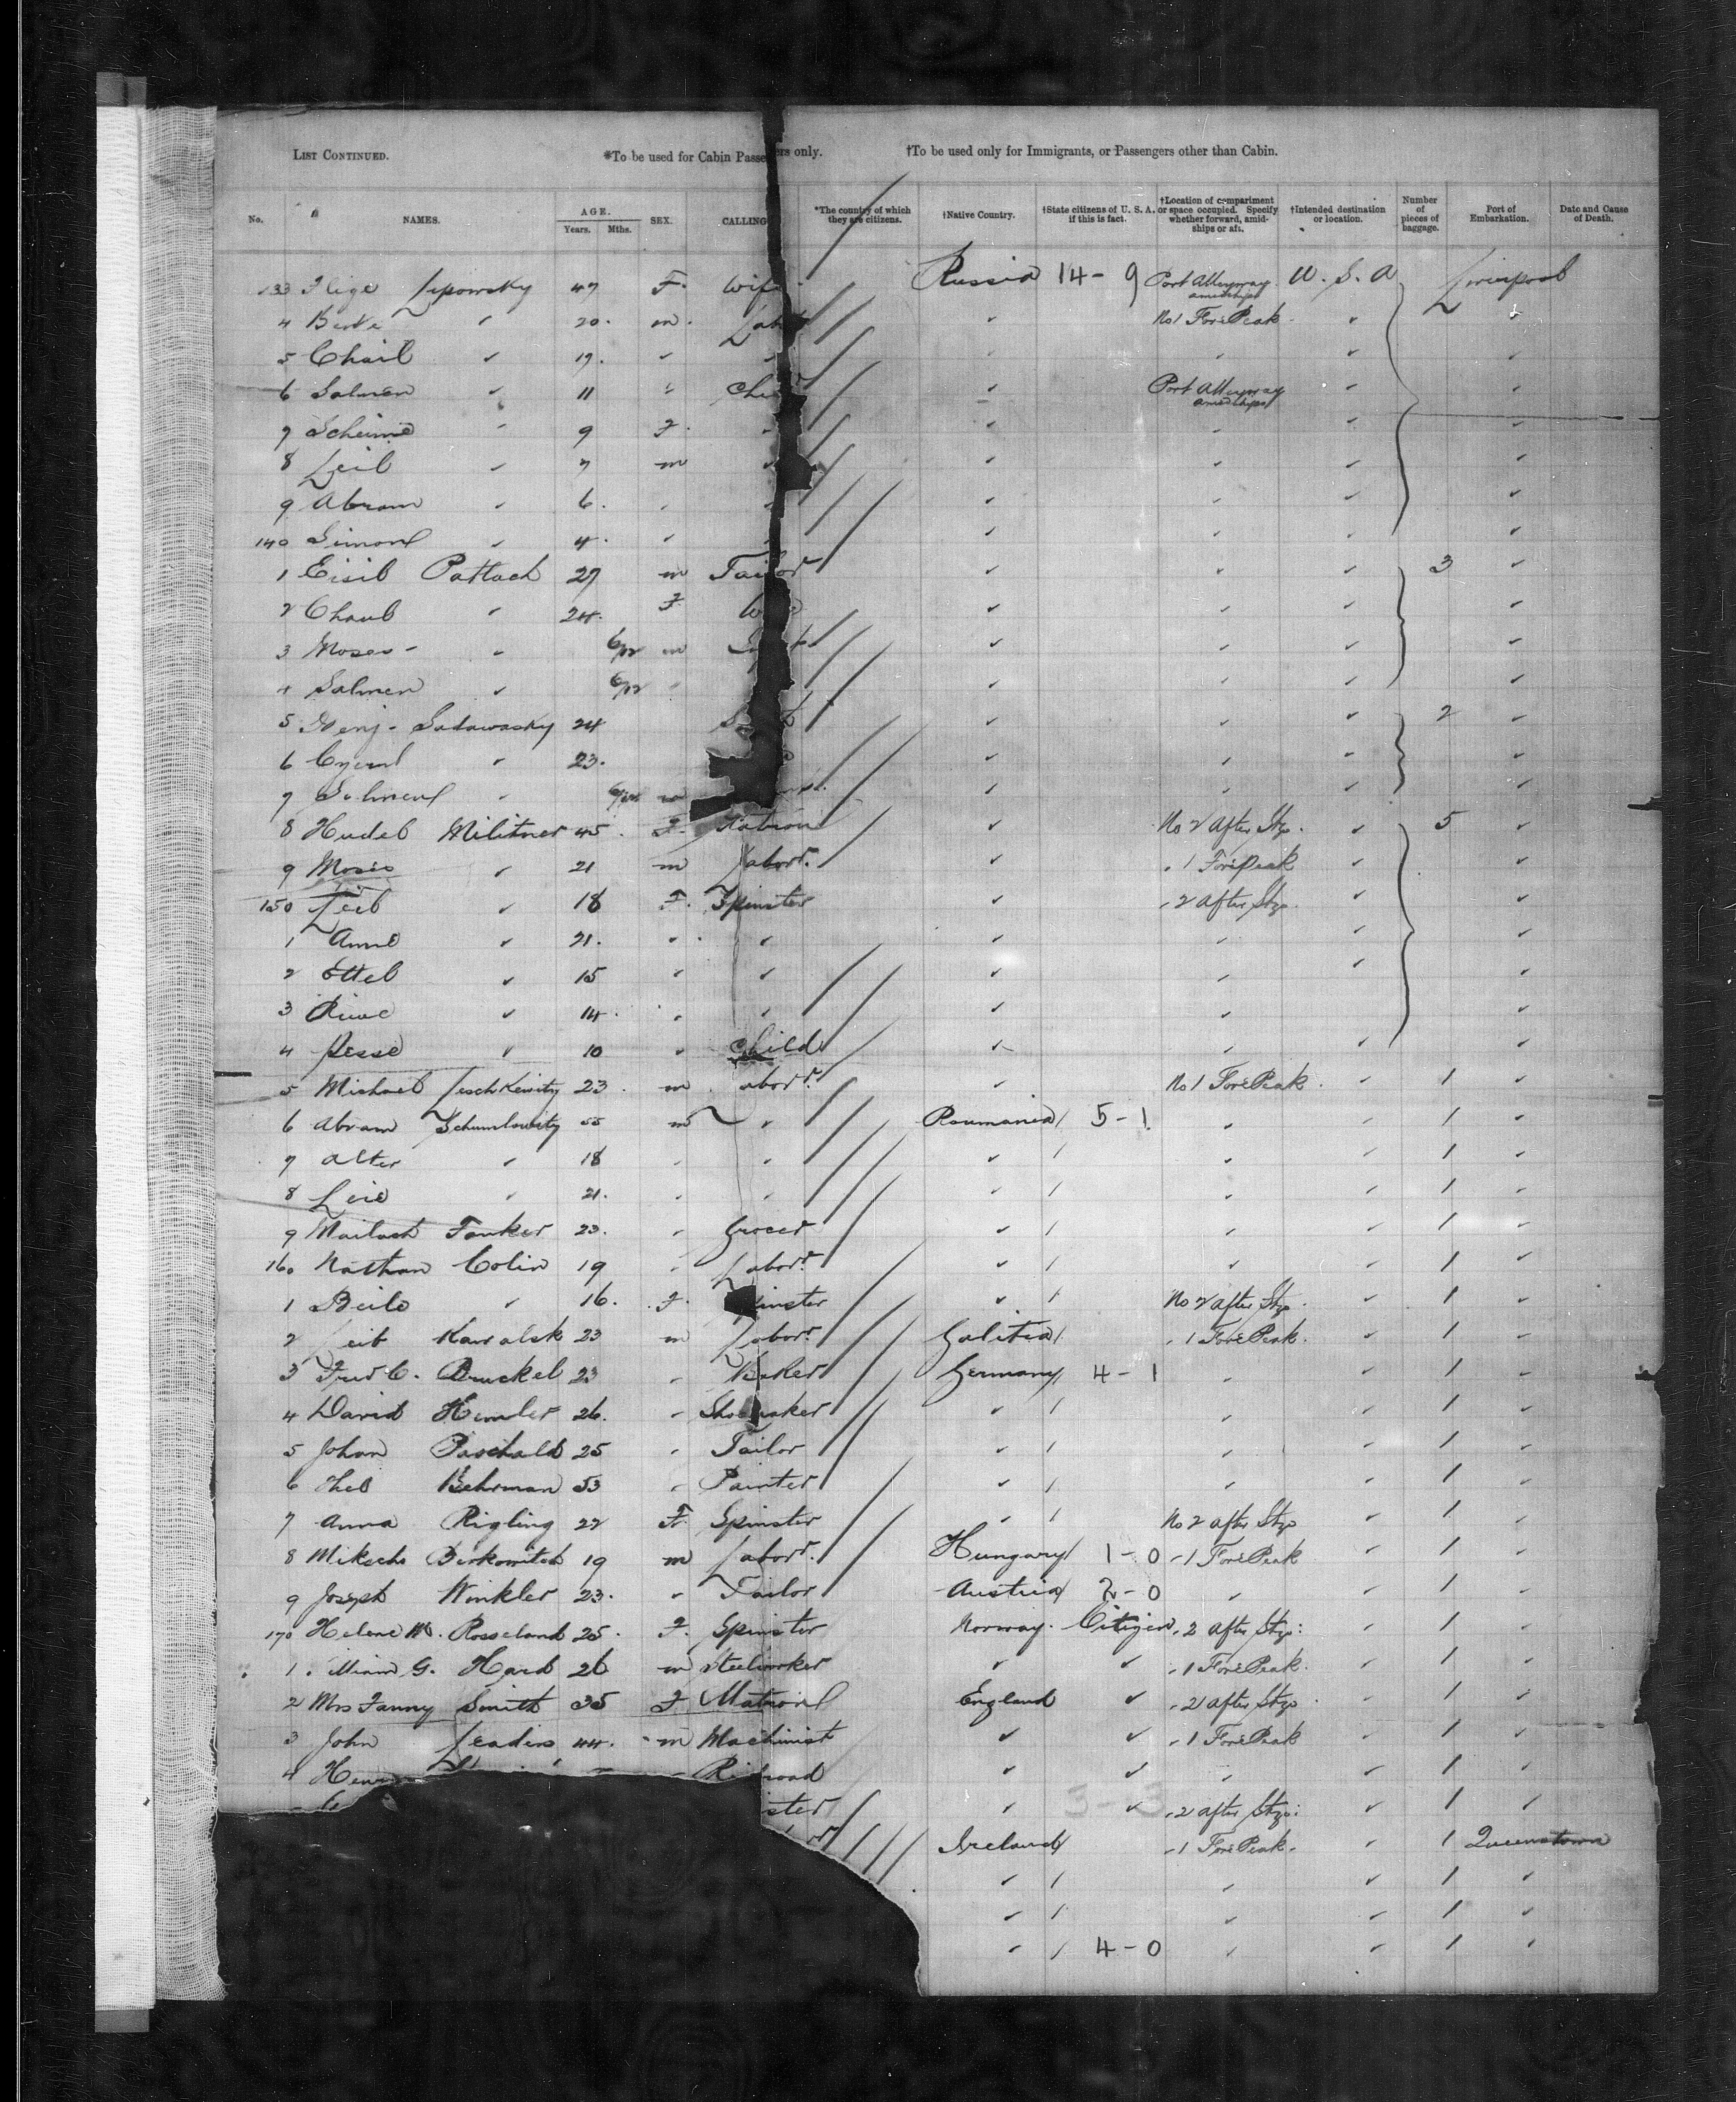 List Continued. *To be used for Cabin Passengers only. †To be used only for Immigrants, or Passengers other than Cabin.
No. NAMES. AGE. Years. Mths. SEX. CALLING *The country of which they are citizens. †Native Country. †State citizens of U. S. A. if this is fact. †Location of compartment or space occupied. Specify whether forward, amidships or aft. †Intended destination or location. Number of pieces of baggage. Port of Embarkation. Date and Cause of Death.
133 Lipowsky 47 F. Wife Russia 14-9 Port Alleyway amidships U.S.A Liverpool
4 20. m. No 1 Fore Peak ✓ ✓
5 ✓ 19. ✓ ✓ ✓
6 Salmen ✓ 11 " ✓ Port Alleyway amidships ✓ ✓
7 Scheime " 9 F. ✓ ✓ ✓ ✓
8 Leib ✓ 7 m ✓ ✓ ✓ ✓
9 Abram ✓ 6. ✓ ✓ ✓ ✓ ✓
140 Simon ✓ 4. ✓ ✓ ✓ ✓ ✓
1 Eisib Patlach 27 m Tailor ✓ ✓ ✓ 3 ✓
2 ✓ 24. F ✓ ✓ ✓ ✓
3 Moses - ✓ 6/12 m ✓ ✓ ✓ ✓
4 Salmen ✓ 6/12 " ✓ ✓ ✓ ✓
5 Sadawasky 24 ✓ ✓ ✓ 2 ✓
6 ✓ 23. ✓ ✓ ✓ ✓
7 ✓ 6/12 m ✓ ✓ ✓ ✓
8 Hudel Militner 45. F. Matron ✓ No 2 After Stge. ✓ 5 ✓
9 Moses ✓ 21 m Labort. ✓ " 1 Fore Peak ✓ ✓
150 Leib ✓ 18 F. Spinster ✓ " 2 After Stge. ✓ ✓
1 Anne ✓ 21. " ✓ ✓ ✓ ✓ ✓
2 Ettel ✓ 15 " ✓ ✓ ✓ ✓ ✓
3 ✓ 14. " ✓ ✓ ✓ ✓
4 Pesse ✓ 10 " Child ✓ ✓ ✓ ✓
5 Michael 23. m. Labort. ✓ No 1 Fore Peak. ✓ 1 ✓
6 Abram Schumlowitz 55 m ✓ Roumania 5-1 ✓ ✓ 1 ✓
7 Alter ✓ 18 " ✓ ✓ / ✓ ✓ 1 ✓
8 ✓ 21. " ✓ ✓ / ✓ ✓ 1 ✓
9 Fanker 23. " Grocer ✓ / ✓ ✓ 1 ✓
160 Nathan Colin 19 " Labort. ✓ / ✓ ✓ 1 ✓
1 Beile ✓ 16. F. Spinster ✓ / No 2 After Stge. ✓ 1 ✓
2 Leib Kawalsk 23 m Labort. Galitia / " 1 Fore Peak. ✓ 1 ✓
3 Fred C. Bruckel 23 " Baker Germany 4-1 ✓ ✓ 1 ✓
4 David Hemler 26. " Shoemaker ✓ / ✓ ✓ 1 ✓
5 Johan Paschald 25 " Tailor ✓ / ✓ ✓ 1 ✓
6 Theo Behrman 53 " Painter ✓ / ✓ ✓ 1 ✓
7 Anna Rigling 22 F. Spinster ✓ / No 2 After Stge ✓ 1 ✓
8 Berkowitch 19 m Labort. Hungary 1-0 " 1 Fore Peak ✓ 1 ✓
9 Joseph Winkler 23. " Tailor Austria 2-0 ✓ ✓ 1 ✓
170 Helene M. Rosseland 25. F. Spinster Norway. Citizen " 2 After Stge: ✓ 1 ✓
1 G. Hard 26 m Steelworker ✓ ✓ " 1 Fore Peak. ✓ 1 ✓
2 Mrs Fanny Smith 35 F Matron England ✓ " 2 After Stge ✓ 1 ✓
3 John Leaders 44. m Machinist ✓ ✓ " 1 Fore Peak ✓ 1 ✓
4 " Railroad ✓ ✓ ✓ ✓ 1 ✓
✓ 3-3 ✓ " 2 After Stge: ✓ 1 ✓
Ireland / " 1 Fore Peak. ✓ 1 Queenstown
✓ / ✓ ✓ 1 ✓
✓ / ✓ ✓ 1 ✓
✓ / 4-0 ✓ ✓ 1 ✓